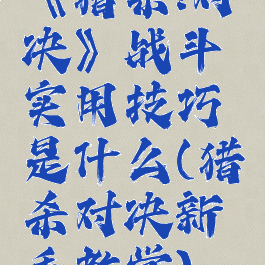 《猎杀:对
决》战斗
实用技巧
是什么(猎
杀对决新
手教学)